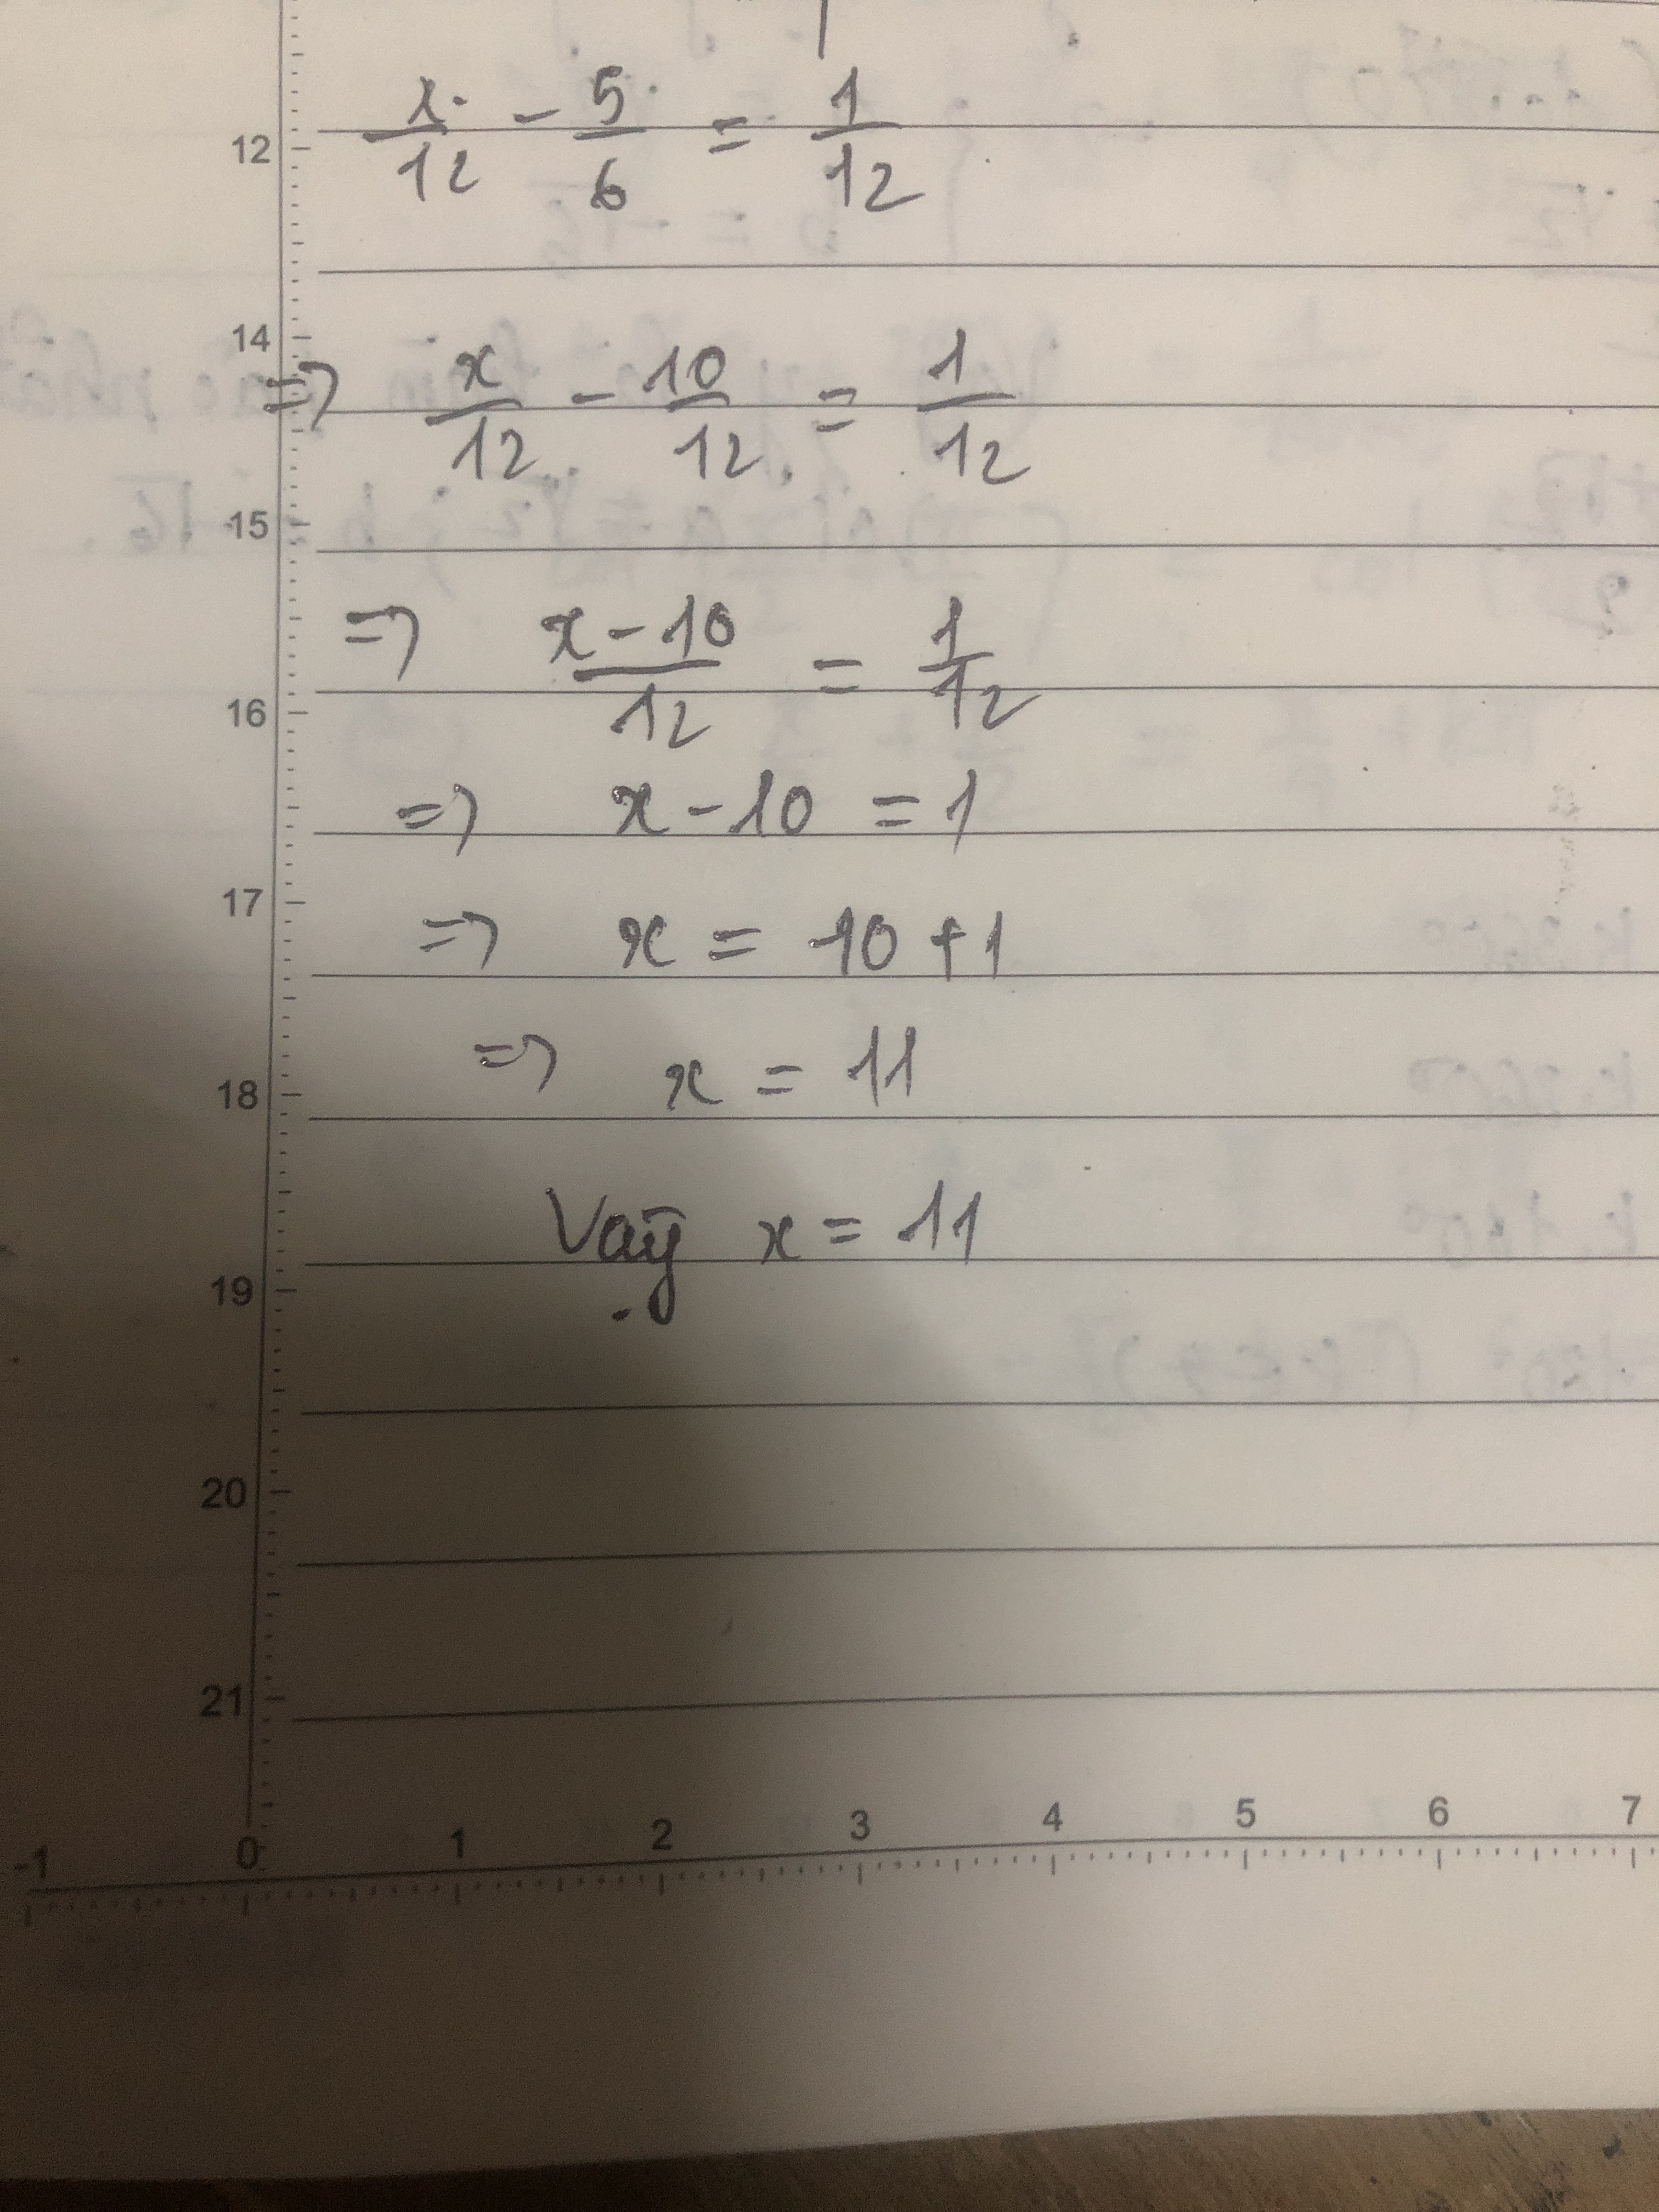 x/12 - 5/6 = 1/12
12
14
=> x/12 - 10/12 = 1/12
15
=> x-10/12 = 1/12
16
=> x-10 = 1
17
=> x = 10+1
=> x = 11
18
Vậy x = 11
19
20
21
-1 0 1 2 3 4 5 6 7